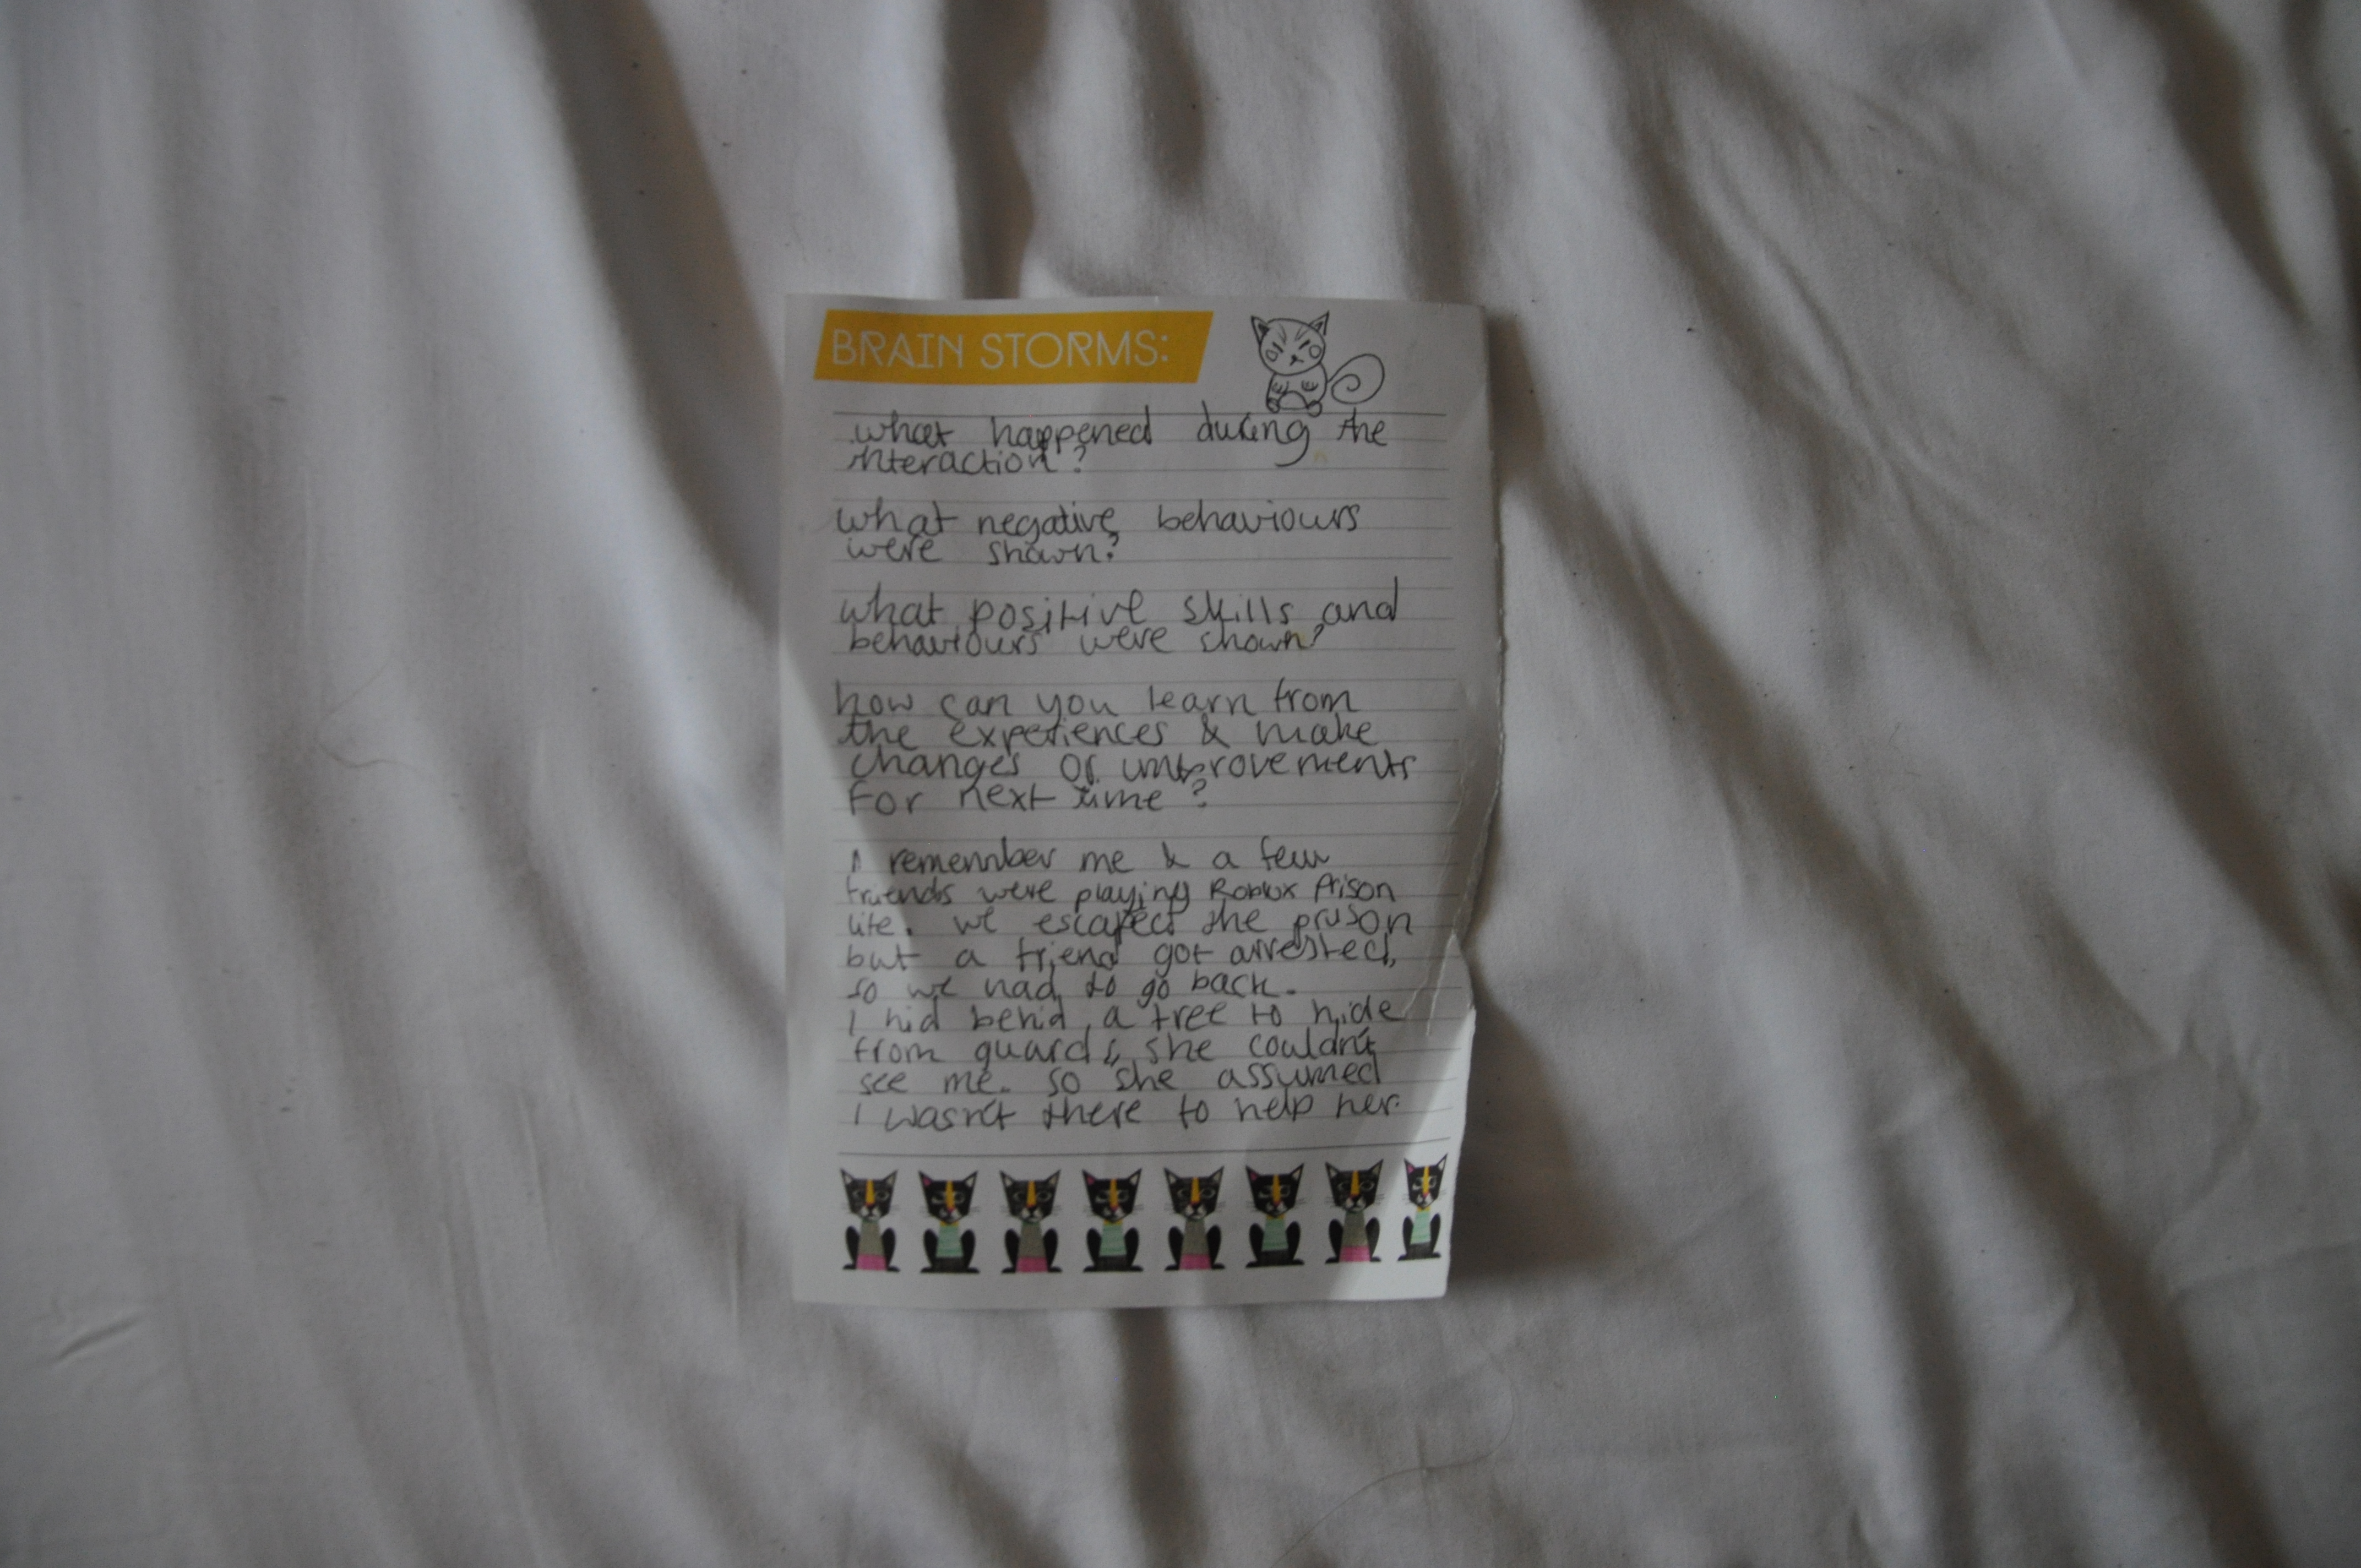 BRAIN STORMS:
what happened during the
interaction?
what negative behaviours
were shown?
what positive skills and
behaviours were shown?
how can you learn from
the experiences & make
changes or improvements
for next time?
I remember me & a few
friends were playing Roblox Prison
life. we escaped the prison
but a friend got arrested,
so we had to go back.
I hid behid a tree to hide
from guards, she couldn't
see me. so she assumed
I wasn't there to help her.